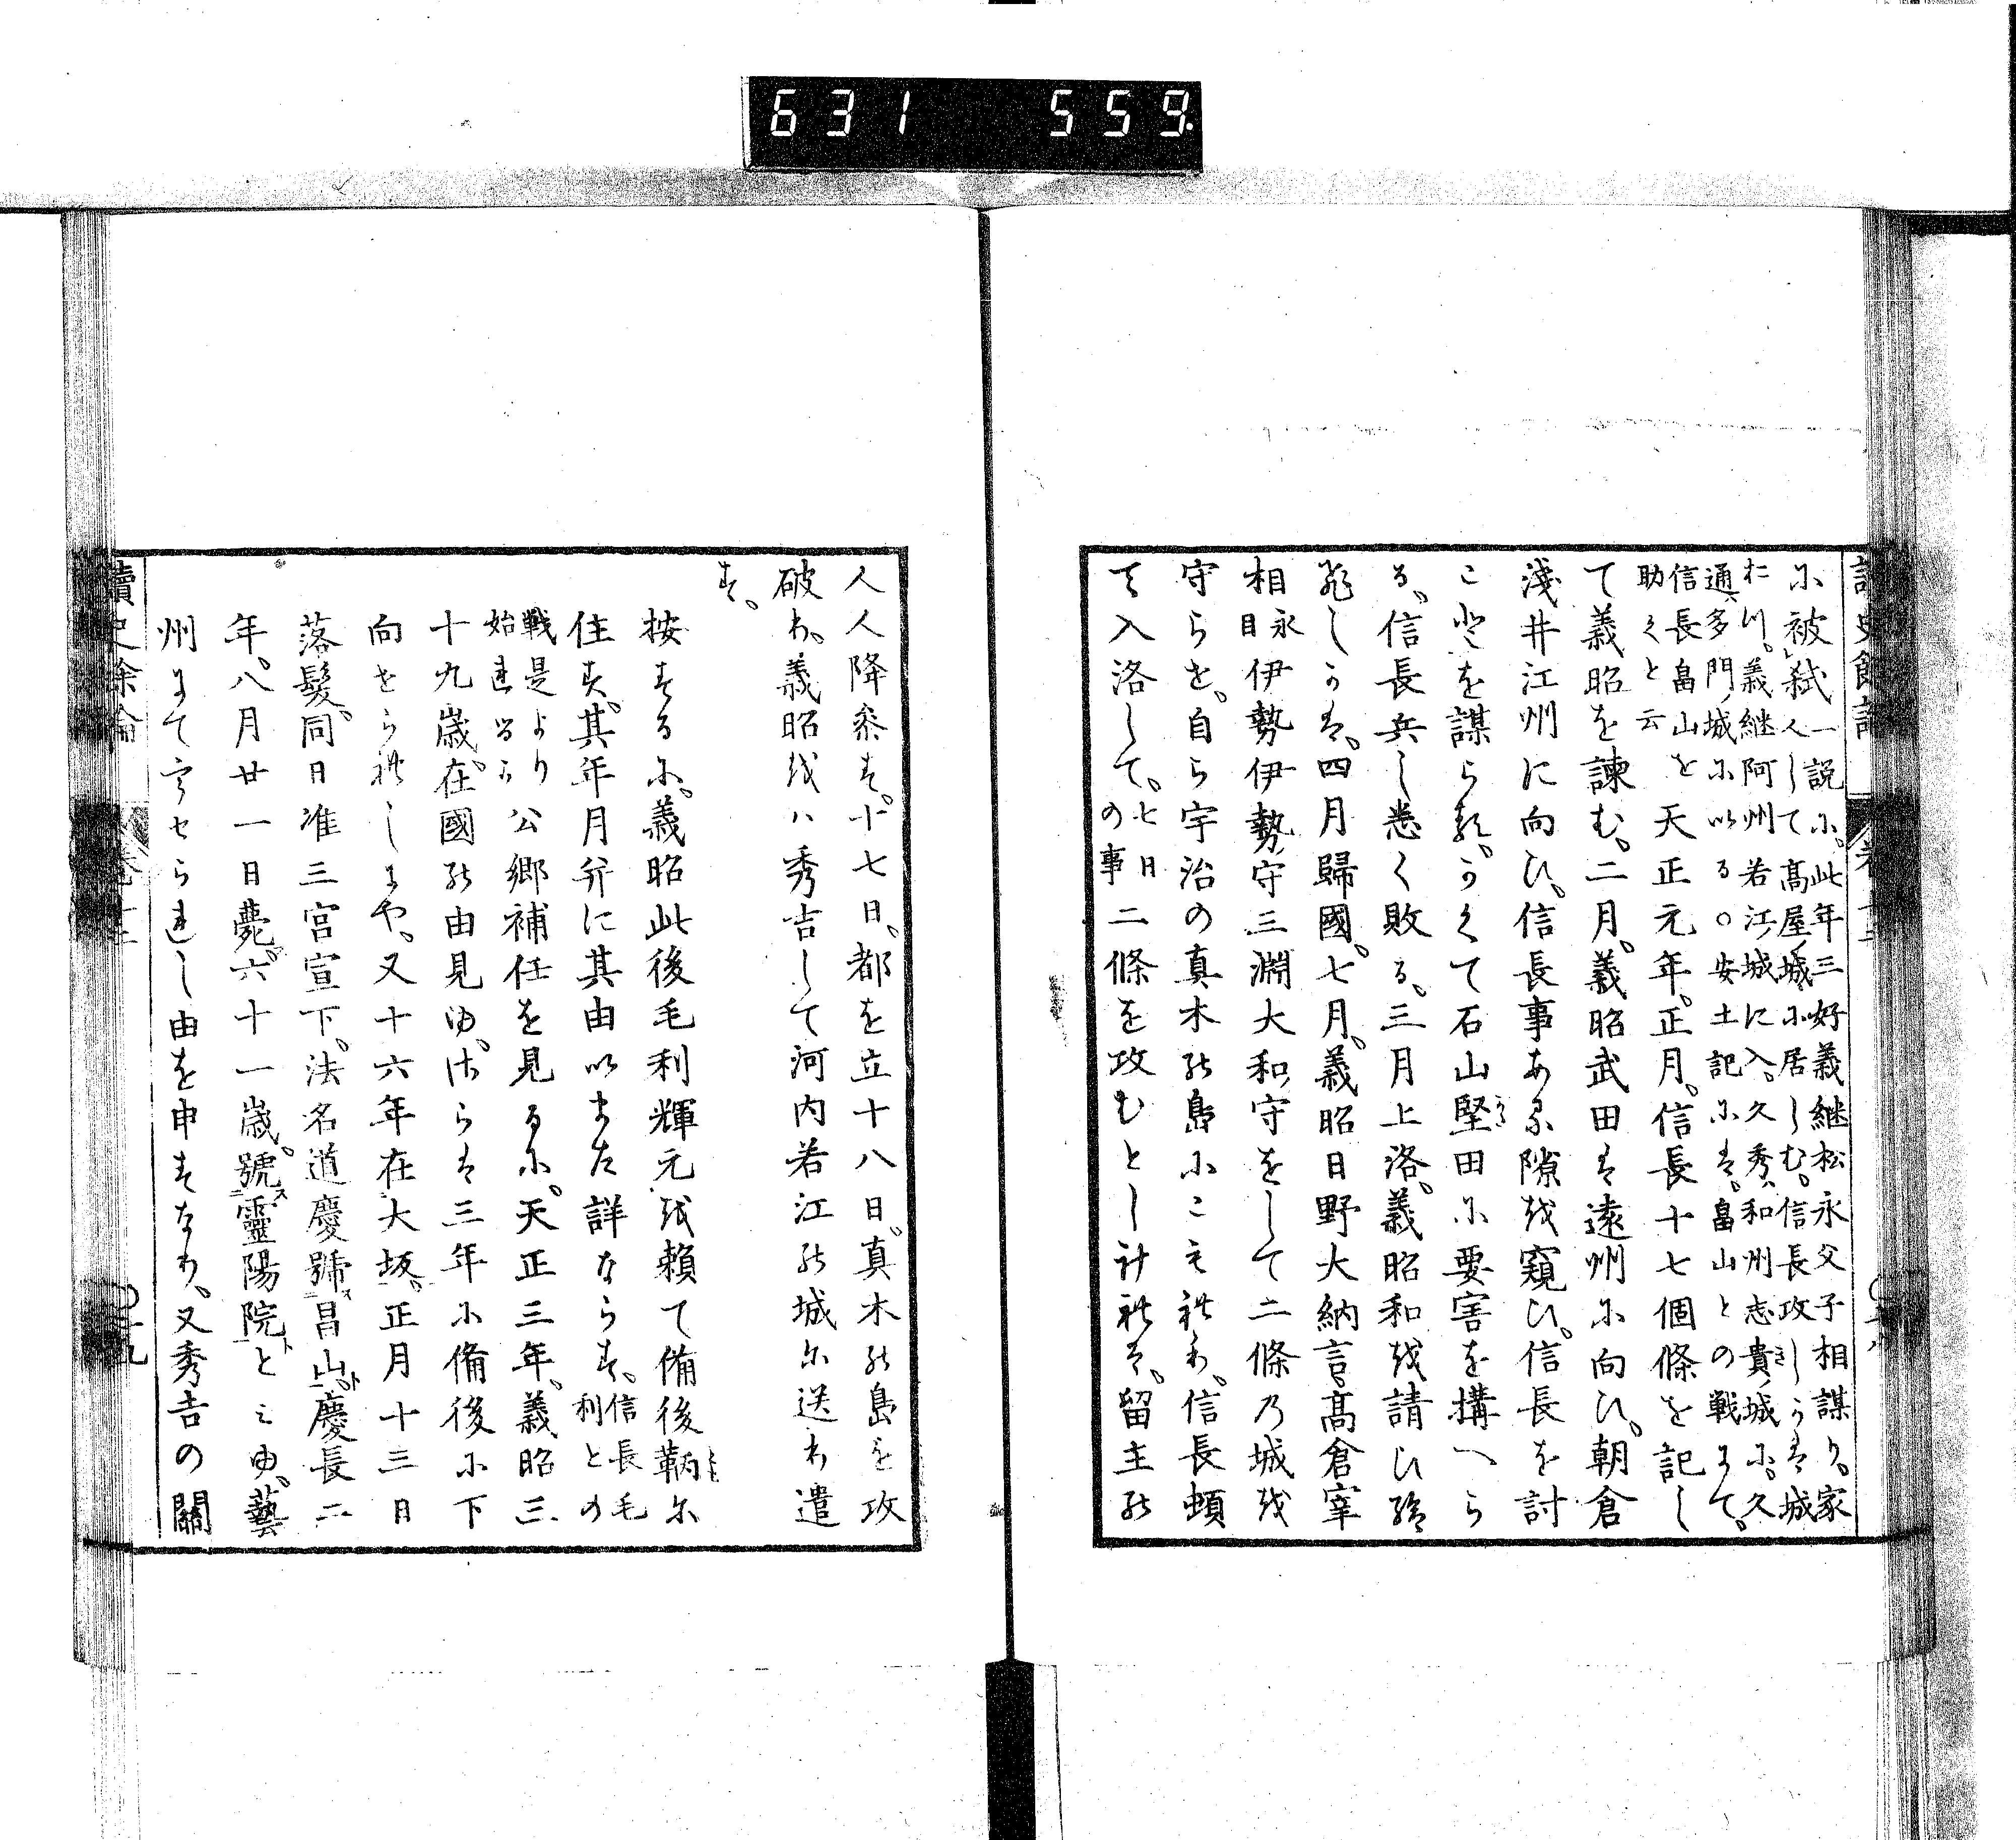 631 559
讀史餘論 卷十二
に被弑一説に、此年三好義継松永父子相謀り、家
人して高屋ノ城に居しむ。信長攻しかは城
おつ。義継阿州若江ノ城に入。久秀ハ和州志貴ノ城に、久
通ハ多門ノ城に以る〇安土記にハ、畠山との戦まて、
信長畠山を
助くと云天正元年。正月。信長十七個條を記し
て義昭を諫む。二月。義昭武田は遠州に向ひ、朝倉
淺井江州に向ひ、信長事ある隙を窺ひ、信長を討
ことを謀らる。かくて石山堅田に要害を構へら
る。信長兵し悉く敗る。三月上洛。義昭和を請ひ給
ひしかは、四月歸國。七月。義昭日野大納言、高倉宰
相永
目伊勢伊勢ノ守三淵大和ノ守をして二條乃城を
守らせ、自ら宇治の真木の島にこもれり。信長頓
て入洛して、七日
の事二條を攻むとし計れは、留主の
人人降参す。十七日、都を立十八日、真木の島を攻
破り、義昭をハ秀吉して河内若江の城に送り遣
す。
按するに、義昭此後毛利輝元を頼て備後鞆に
住す。其年月并に其由いまた詳ならす。信長毛
利との
戦是より
始れるか公郷補任を見るに、天正三年。義昭三
十九歳。在國の由見ゆ。さらは三年に備後に下
向せられしまや、又十六年在大坂。正月十三日
落髮。同日准三宮宣下。法名道慶號昌山慶長二
年。八月廿一日薨。六十一歳。號靈陽院とミゆ。藝
州まて害せられし由を申すなり、又秀吉の關
讀史餘論 卷十二 〇十九